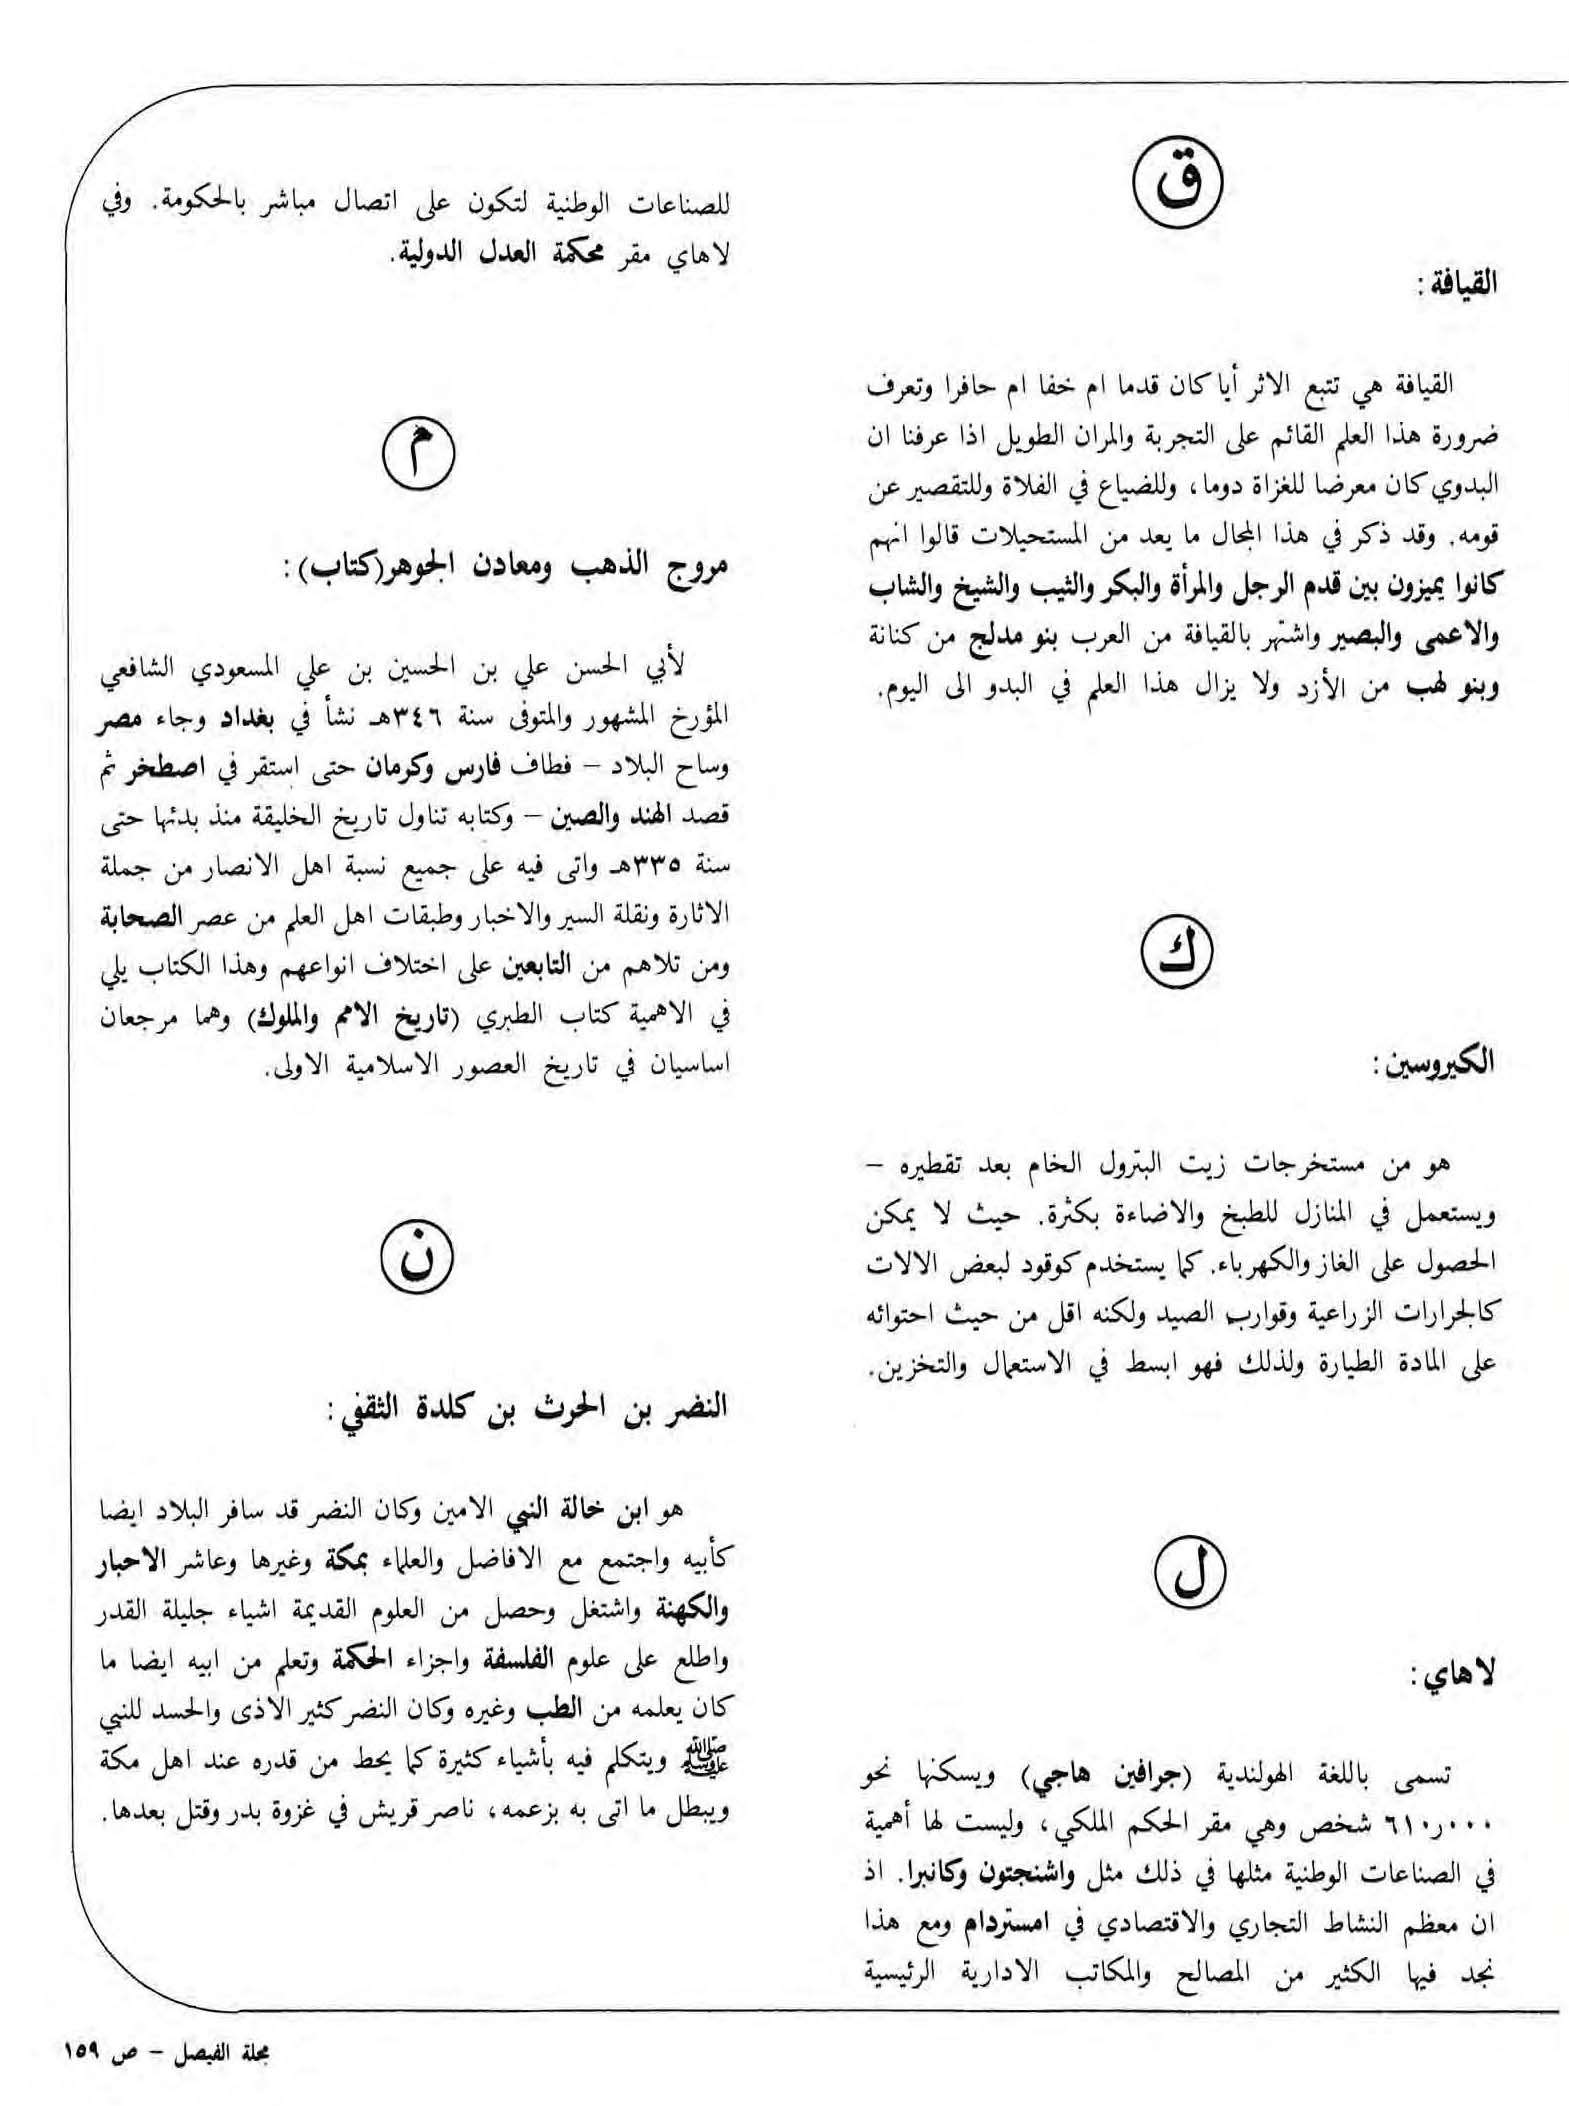 ق
القيافة :
القيافة هي تتبع الاثر أيا كان قدما ام خفا ام حافرا وتعرف
ضرورة هذا العلم القائم على التجربة والمران الطويل اذا عرفنا ان
البدوي كان معرضا للغزاة دوما، وللضياع في الفلاة وللتقصير عن
قومه. وقد ذكر في هذا المجال ما يعد من المستحيلات قالوا انهم
كانوا يميزون بين قدم الرجل والمرأة والبكر والثيب والشيخ والشاب
والاعمى والبصير واشتهر بالقيافة من العرب بنو مدلج من كنانة
وبنو لهب من الأزد ولا يزال هذا العلم في البدو الى اليوم.
ك
الكيروسين :
هو من مستخرجات زيت البترول الخام بعد تقطيره –
ويستعمل في المنازل للطبخ والاضاءة بكثرة. حيث لا يمكن
الحصول على الغاز والكهرباء. كما يستخدم كوقود لبعض الالات
كالجرارات الزراعية وقوارب الصيد ولكنه اقل من حيث احتوائه
على المادة الطيارة ولذلك فهو ابسط في الاستعمال والتخزين.
ل
لاهاي :
تسمى باللغة الهولندية (جرافين هاجي) ويسكنها نحو
٦١٠ر٠٠٠ شخص وهي مقر الحكم الملكي، وليست لها أهمية
في الصناعات الوطنية مثلها في ذلك مثل واشنجتون وكانبرا. اذ
ان معظم النشاط التجاري والاقتصادي في امستردام ومع هذا
نجد فيها الكثير من المصالح والمكاتب الادارية الرئيسية
للصناعات الوطنية لتكون على اتصال مباشر بالحكومة. وفي
لاهاي مقر محكمة العدل الدولية.
م
مروج الذهب ومعادن الجوهر(كتاب) :
لأبي الحسن علي بن الحسين بن علي المسعودي الشافعي
المؤرخ المشهور والمتوفى سنة ٣٤٦هـ نشأ في بغداد وجاء مصر
وساح البلاد – فطاف فارس وكرمان حتى استقر في اصطخر ثم
قصد الهند والصين – وكتابه تناول تاريخ الخليقة منذ بدئها حتى
سنة ٣٣٥هـ واتى فيه على جميع نسبة اهل الانصار من جملة
الاثارة ونقلة السير والاخبار وطبقات اهل العلم من عصر الصحابة
ومن تلاهم من التابعين على اختلاف انواعهم وهذا الكتاب يلي
في الاهمية كتاب الطبري (تاريخ الامم والملوك) وهما مرجعان
اساسيان في تاريخ العصور الاسلامية الاولى.
ن
النضر بن الحرث بن كلدة الثقفي :
هو ابن خالة النبي الامين وكان النضر قد سافر البلاد ايضا
كأبيه واجتمع مع الافاضل والعلماء بمكة وغيرها وعاشر الاحبار
والكهنة واشتغل وحصل من العلوم القديمة اشياء جليلة القدر
واطلع على علوم الفلسفة واجزاء الحكمة وتعلم من ابيه ايضا ما
كان يعلمه من الطب وغيره وكان النضر كثير الاذى والحسد للنبي
ﷺ ويتكلم فيه بأشياء كثيرة كما يحط من قدره عند اهل مكة
ويبطل ما اتى به بزعمه، ناصر قريش في غزوة بدر وقتل بعدها.
مجلة الفيصل – ص ١٥٩